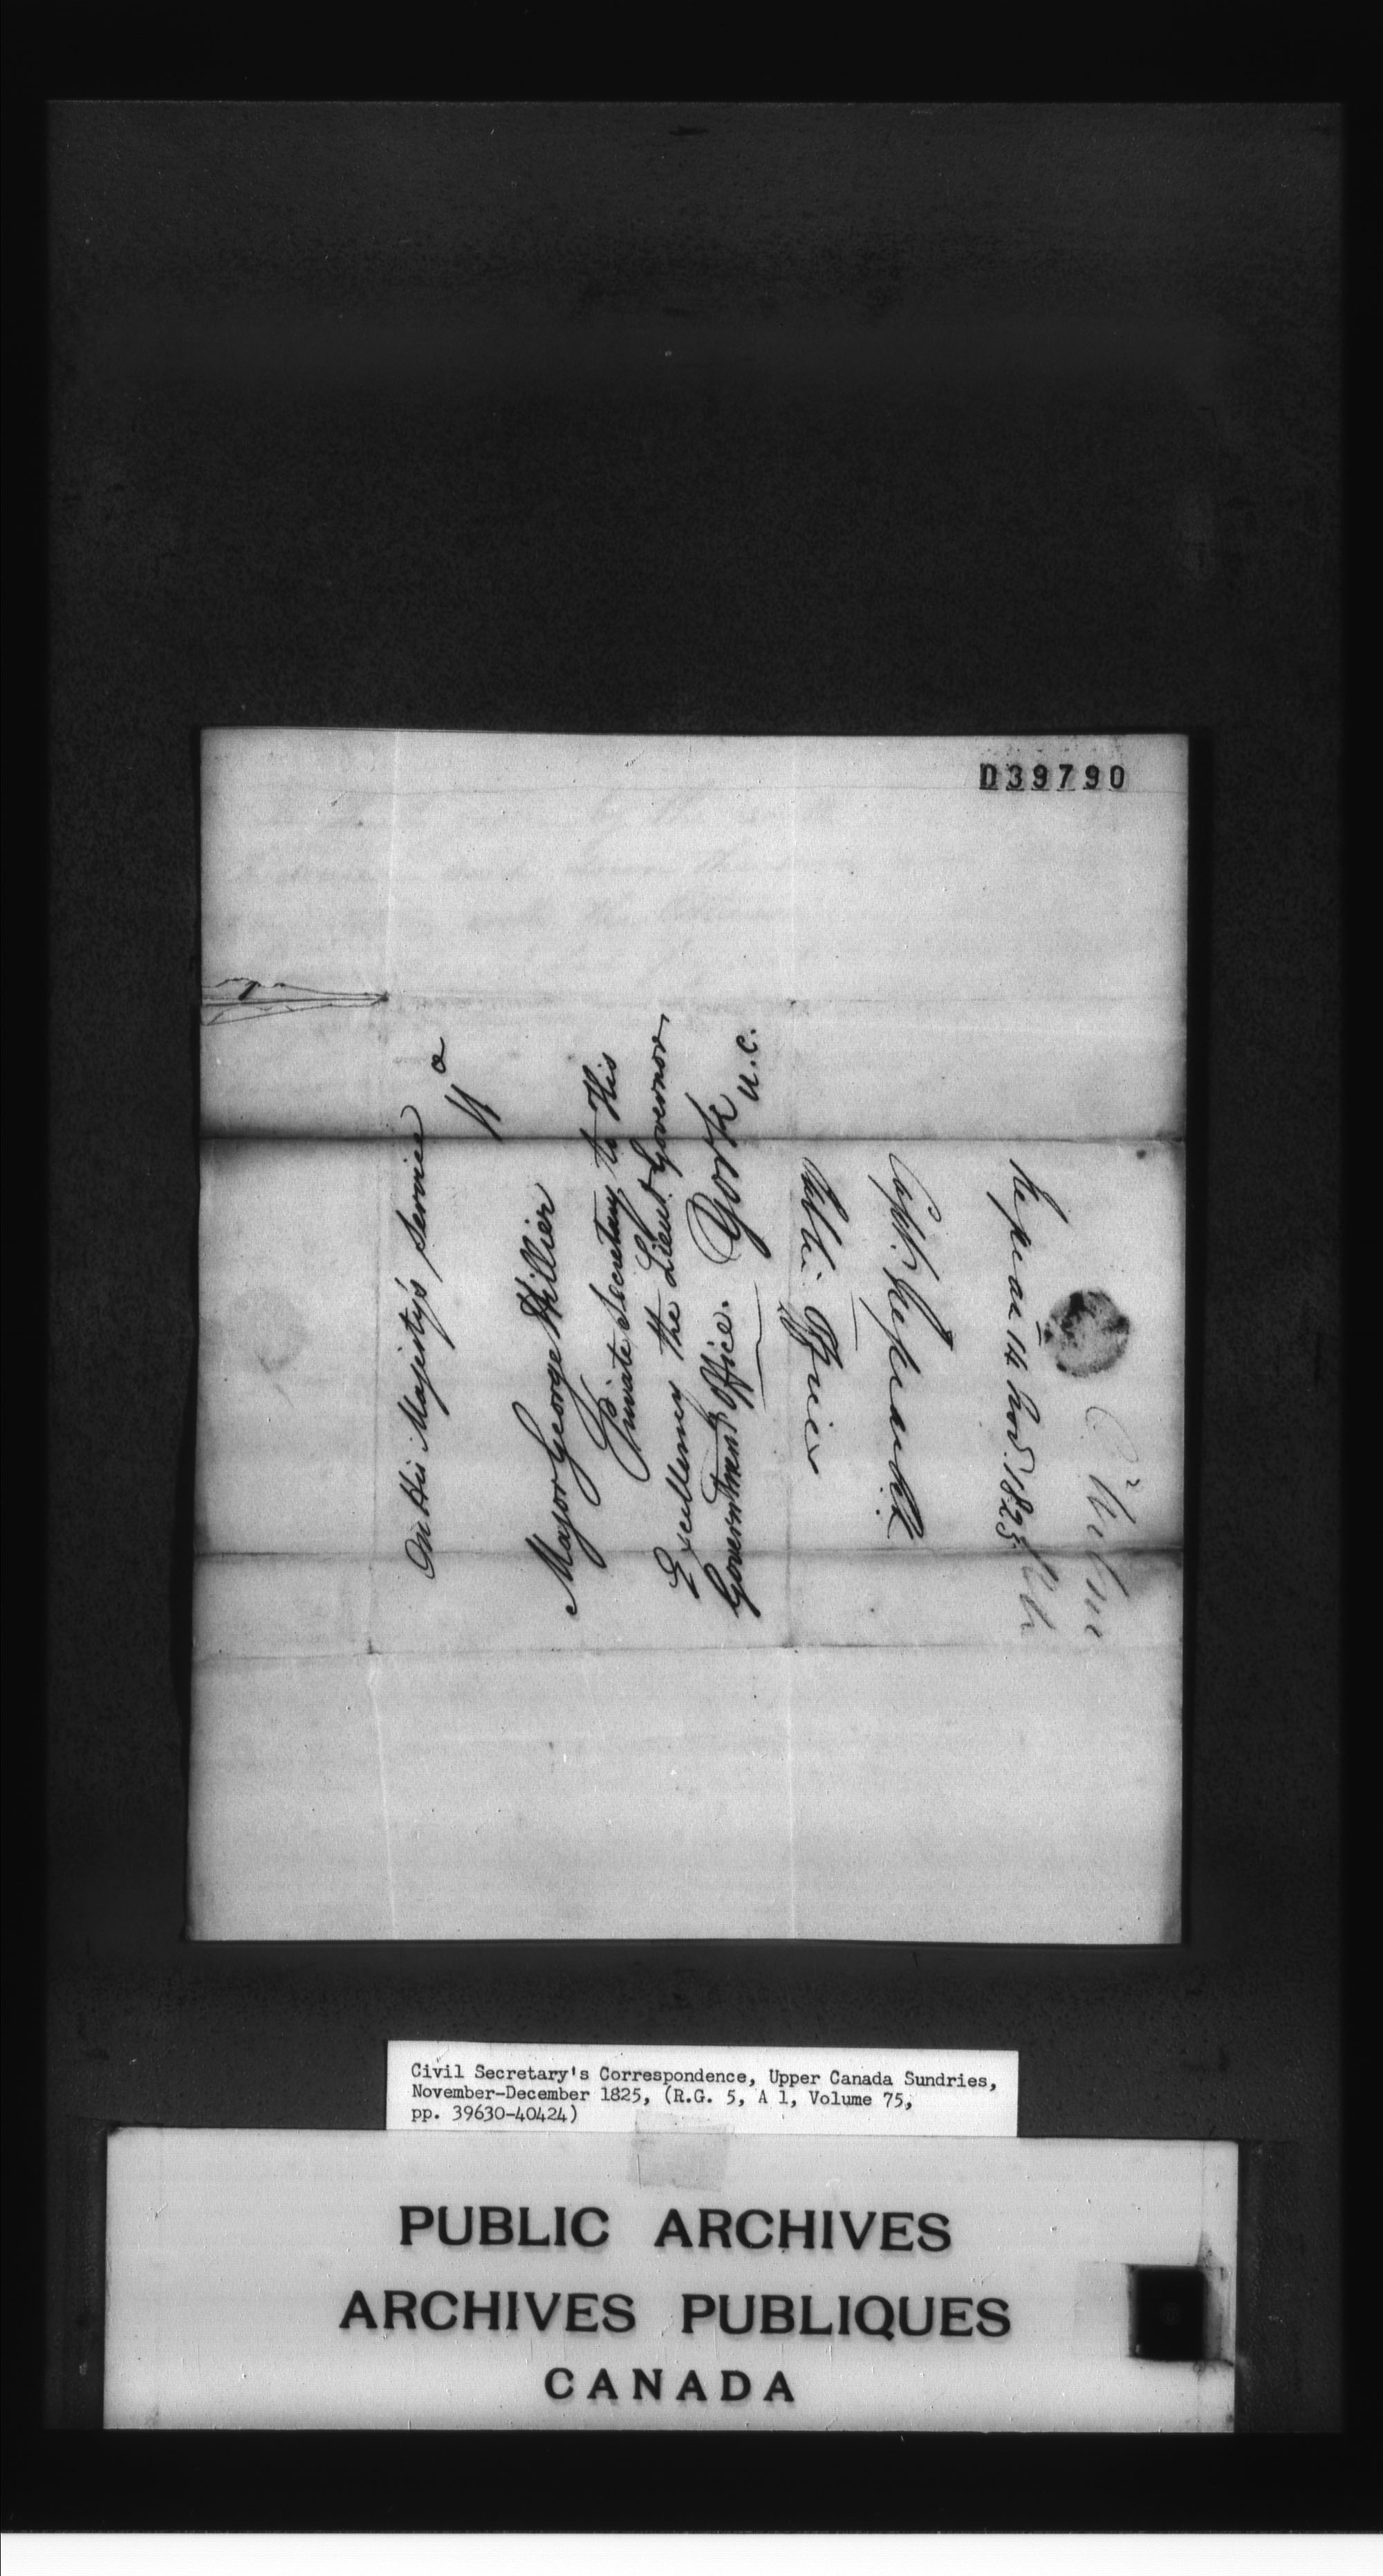 D39790
On His Majesty's Service
Major George Hillier
Private Secretary to His
Excellency the Lieut. Governor
Government Office. York
U.C.
Public Officer
Capt.
14 Nov. 1825
Civil Secretary's Correspondence, Upper Canada Sundries,
November-December 1825, (R.G. 5, A 1, Volume 75,
pp. 39630-40424)
PUBLIC ARCHIVES
ARCHIVES PUBLIQUES
CANADA